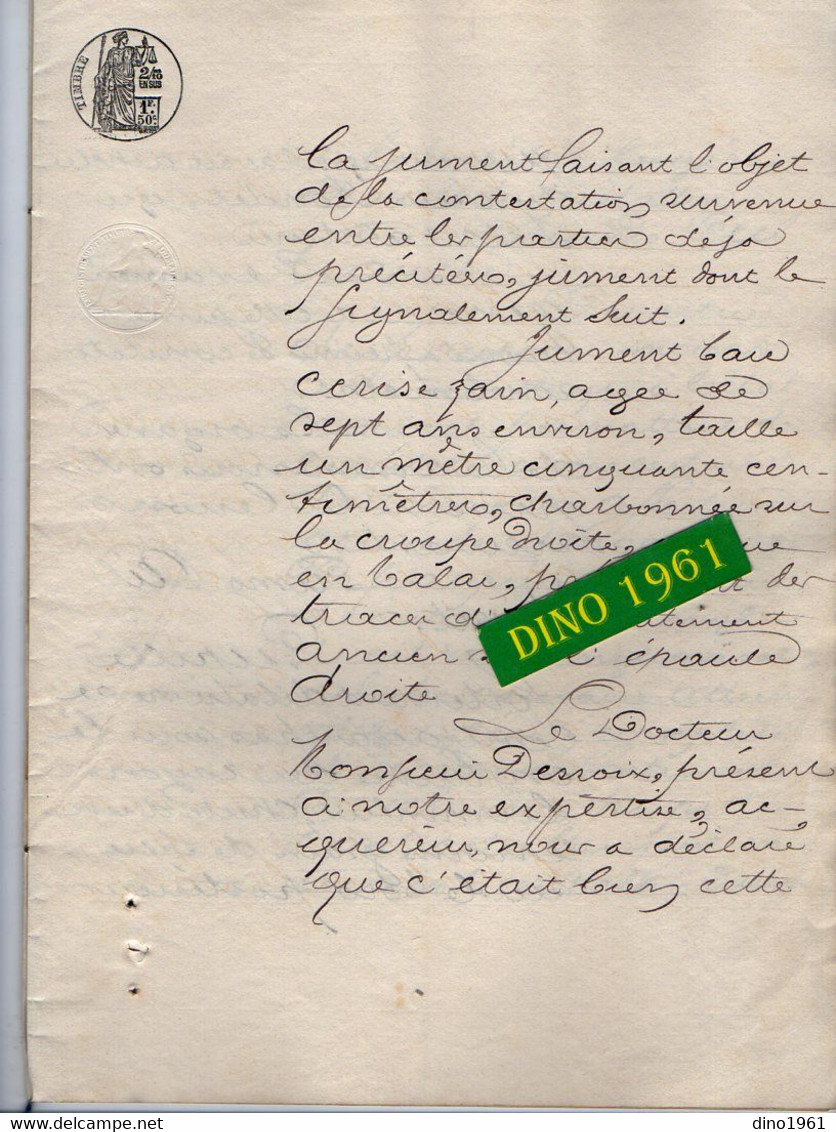 TIMBRE
2/10
EN SUS
1F.
50c.
la jument faisant l'objet
de la contestation survenue
entre les parties déjà
précitées, jument dont le
signalement suit.
Jument baie
cerise zain, agée de
sept ans environ, taille
un mètre cinquante cen-
timètres, charbonnée sur
la croupe droite,
en balai, des
traces d'
ancien l'épaule
droite
Le Docteur
Monsieur Desroix, présent
a notre expertise, ac-
quéreur, nous a déclaré
que c'était bien cette
DINO 1961
www.delcampe.net
dino1961